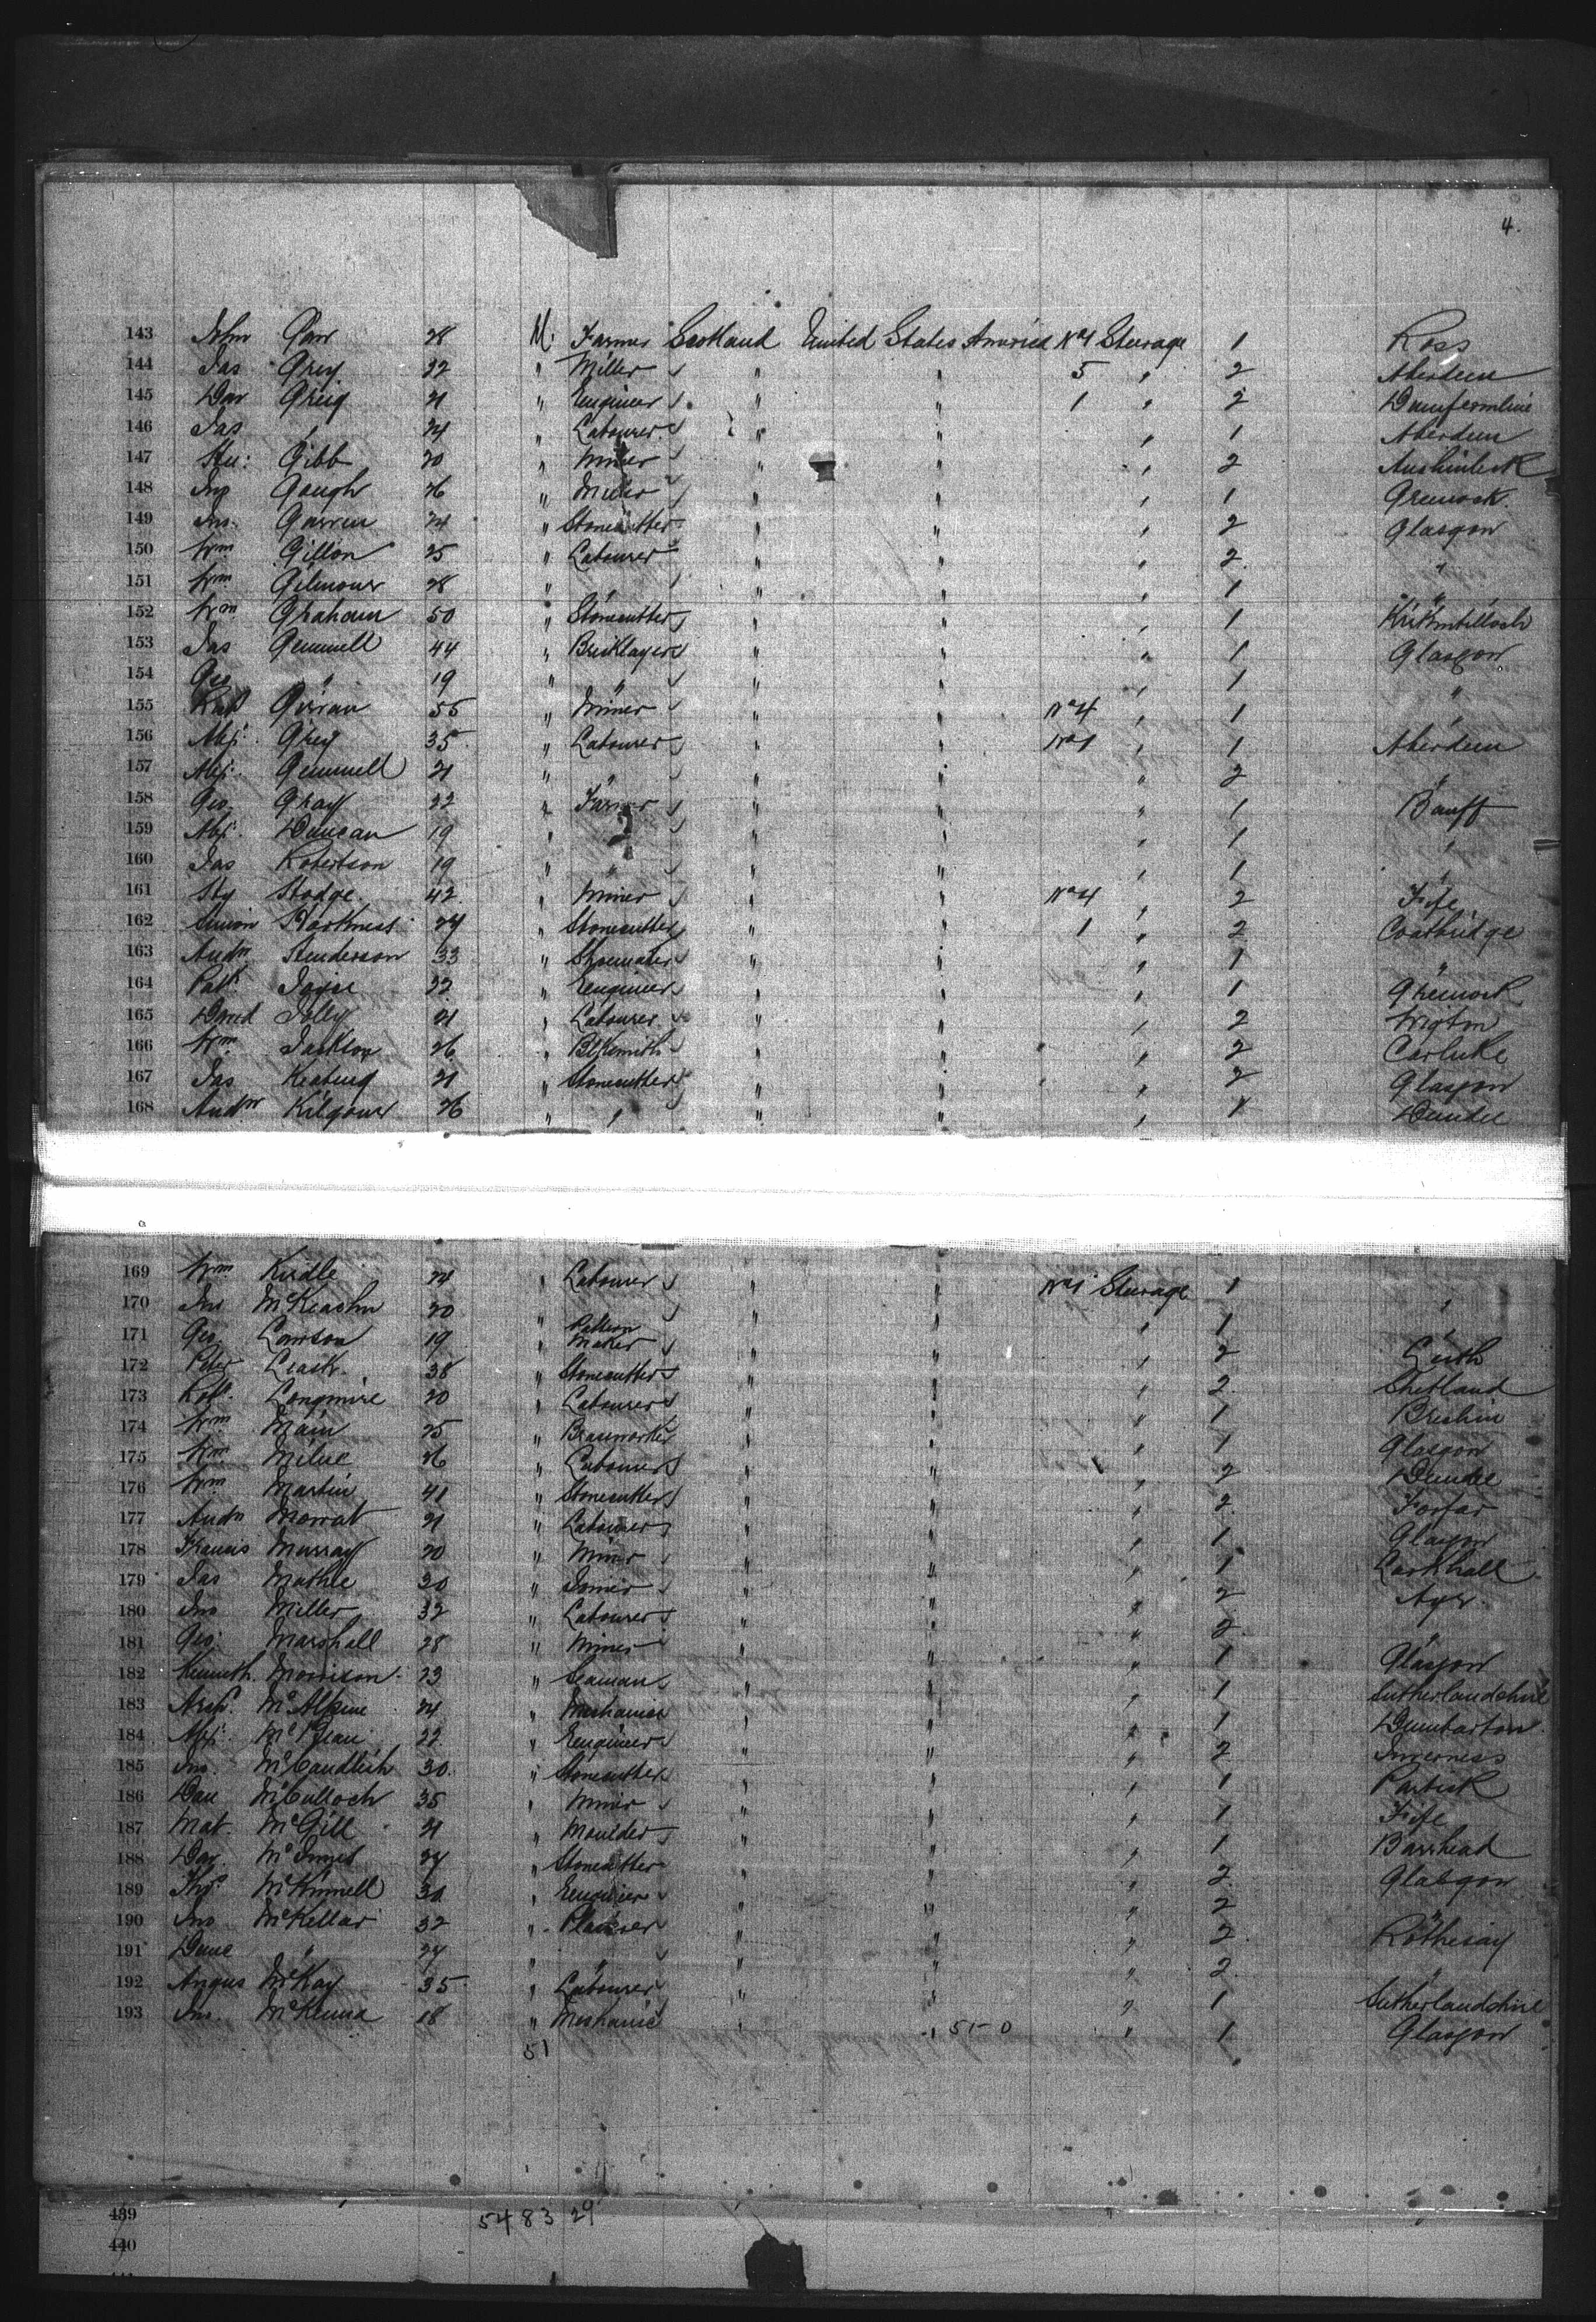 4.
143 John Parr 28 M. Farmer Scotland United States America No 4 Steerage 1 Ross
144 Jas Grey 22 " Miller " " 5 " 2 Aberdeen
145 Dav Greig 21 " Engineer " " 1 " 2 Dunfermline
146 Jas " 24 " Labourer " " " 1 Aberdeen
147 Gibb 20 " Miner " " " 2 Auchinleck
148 Jno Gough 26 " " " " 1 Greenock
149 Jno. Garren 24 " Stonecutter " " " 2 Glasgow
150 Wm Gillon 25 " Labourer " " " 2 "
151 Wm Gilmour 28 " " " " " 1 "
152 Wm Graham 50 " Stonecutter " " " 1 Kirkintilloch
153 Jas Gemmell 44 " Bricklayer " " " 1 Glasgow
154 Geo " 19 " " " " " 1 "
155 55 " Miner " " No 4 " 1 "
156 Alex. Grey 35 " Labourer " " No 1 " 1 Aberdeen
157 Alex. Gemmell 21 " " " " " 2 "
158 Geo. Gray 22 " Farmer " " " 1 Banff
159 Alex. Duncan 19 " " " " 1 "
160 Jas Robertson 19 " " " " " 1 "
161 Hy Hodge 42 " Miner " " No 4 " 2 Fife
162 Simon Harkness 24 " Stonecutter " " 1 " 2 Coatbridge
163 Andw Henderson 33 " Shoemaker " " " 1 "
164 Patk Joyce 22 " Engineer " " " 1 Greenock
165 David Jolly 21 " Labourer " " " 2 Wigton
166 Wm Jackson 26 " Blksmith " " " 2 Carluke
167 Jas Keating 21 " Stonecutter " " " 2 Glasgow
168 Andw Kilgour 26 " " " " " 1 Dundee
169 Wm Kiddle 24 " Labourer " " No 1 Steerage 1 "
170 Jno McKeachn 20 " " " " 1 "
171 Geo. Lawson 19 " Pattern Maker " " " 2 Leith
172 Peter Leask 38 " Stonecutter " " " 2 Shetland
173 Robt. Longmire 20 " Labourer " " " 1 Brechin
174 Wm Main 25 " Brassworker " " " 1 Glasgow
175 Wm Milne 26 " Labourer " " " 2 Dundee
176 Wm Martin 41 " Stonecutter " " " 2 Forfar
177 Andw Mowat 21 " Labourer " " " 1 Glasgow
178 Francis Murray 20 " Miner " " " 1 Larkhall
179 Jas Mathie 30 " Joiner " " " 2 Ayr
180 Jno Miller 32 " Labourer " " " 2 "
181 Geo. Marshall 28 " Miner " " " 1 Glasgow
182 Kenneth Morrison 23 " Seaman " " " 1 Sutherlandshire
183 Archd. McAlpine 24 " Mechanic " " " 1 Dumbarton
184 Alex. McBean 22 " Engineer " " " 2 Inverness
185 Jno. McCandlish 30 " Stonecutter " " " 1 Partick
186 Dan McCulloch 35 " Miner " " " 1 Fife
187 Mat. McGill 21 " Moulder " " " 1 Barrhead
188 Dav. McInnes 24 " Stonecutter " " " 2 Glasgow
189 Thos. McKinnell 30 " Engineer " " " 2 "
190 Jno McKellar 32 " " " " 2 Rothesay
191 " 24 " " " " " 2 "
192 Angus McKay 35 " Labourer " " " 1 Sutherlandshire
193 Jno. McKenna 18 " Mechanic " " " 1 Glasgow
51 51-0
439 5483 29
440